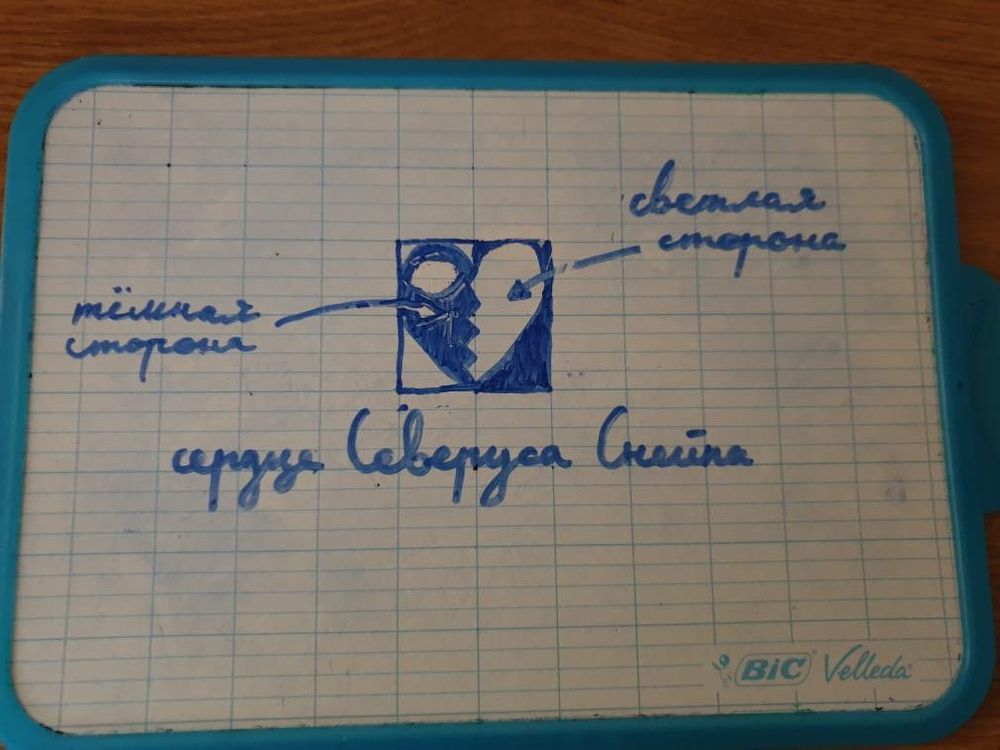 светлая
сторона
тёмная
сторона
сердце Северуса Снейпа
BIC Velleda